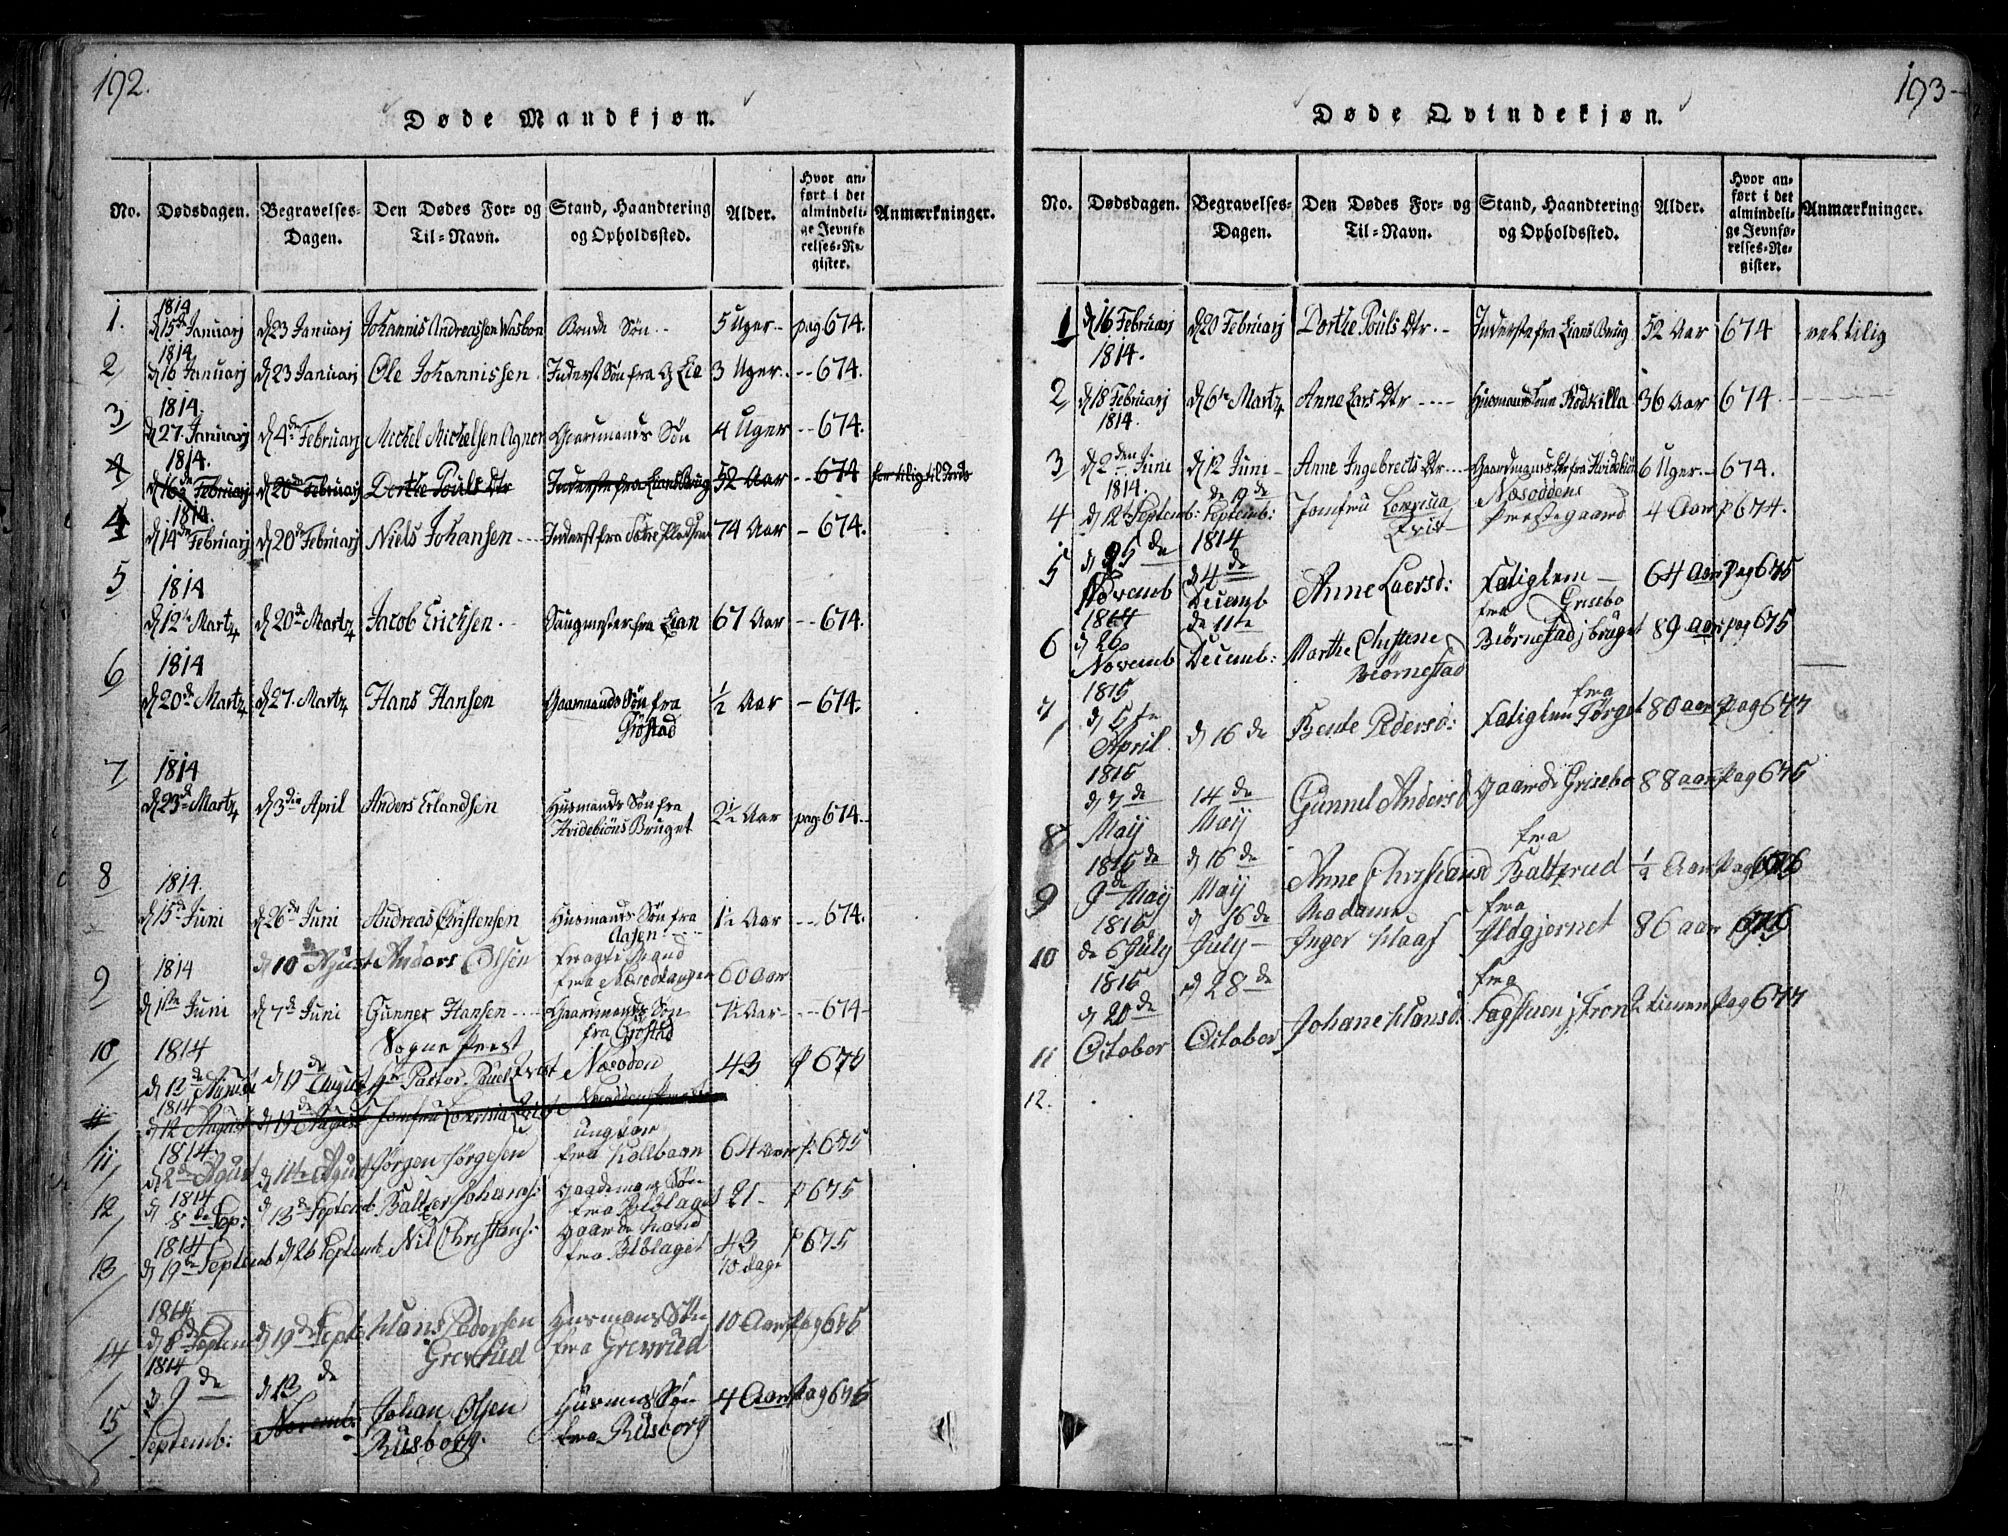 192.
Døde Mandkjøn.
No. Dødsdagen. Begravelses-Dagen. Den Dødes For- og Til-Navn. Stand, Haandtering og Opholdssted. Alder. Hvor anført i det almindelige Jevnførelses-Register. Anmærkninger.
1. 1814 d 15de Januarj d 23 Januarj Johannis Andreassen Wasbon Bonde Søn 5 Uger pag 674.
2 1814 d 16 Januarj d 23 Januarj Ole Johannissen Inderst Søn fra 3 Uger 674.
3 1814. d 27. Januarj d 4de Februarj Michel Michelsen Agnor Gaarmands Søn 4 Uger 674.
4 1814. d 16de Februarj d 20de Februarj Dorthe Pouls Dtr Inderste fra Lians Brug 52 Aar 674
4 1814. d 14de Februarj d 20de Februarj Niels Johansen Inderst fra 74 Aar 674.
5 1814 d 12te Martz d 20de Martz Jacob Erichsen Saugmester fra Lian 67 Aar 674.
6 1814 d 20de Martz d 27. Martz Hans Hansen Gaarmands Søn fra Grøstad ½ Aar 674.
7 1814 d 23de Martz d 3die April Anders Erlandsen Husmands Søn fra Hvidebiøns Bruget 2½ Aar pag. 674.
8 1814. d 15de Juni d 26de Juni Andreas Cristensen Husmands Søn fra Aasen 1½ Aar 674.
d 10 Agust Anders Olsen Mand fra Næsodtangen 60 aar
9 1814 d 1ste Juni d 7de Juni Gunner Hansen Gaarmands Søn fra Grøstad 7½ Aar 674
10 1814 d 12de August d 17de August Sogne Prest Hr Pastor Povel Qvist Næsoden 43 p 675
11 1814 d 12 August d 17de August Jomfru Lovrisia Qvist
11 1814. d 2de Agust d 11te Agust Jørgen Jørgesen ungkar fra Kollbaan 64 Aar p. 675
12 1814 d 8de Sep: d 13de Septemb Baltzer Johans: gaardmans Søn fra Blblaget 21 p 675
13 1814 d 19te Septemb d 26 Septemb Nil Christians: gaarde mand fra Blblaget 43 10 dage p 675
14 1814 d 8de Septem d 19de Septe Hans Pedersen Grevrud Husmans Søn fra Grevrud 10 Aar Pag 675
15 1814 d 9de Septemb: d 13de Novemb: Johan Olsen Rusborg. Husmans Søn fra Rusborg 4 Aar Pag 675
193
Døde Qvindekjøn.
No. Dødsdagen. Begravelses-Dagen. Den Dødes For- og Til-Navn. Stand, Haandtering og Opholdssted. Alder. Hvor anført i det almindelige Jevnførelses-Register. Anmærkninger.
1 d 16 Februarj 1814. d 20 Februarj Dorthe Pouls Dtr. Inderste fra Lians Brug 52 Aar 674
2 d 18 Februarj 1814. d 6te Martz Anne Lars Dtr Husmands Rødkilla 36 Aar 674
3 d 2den Juni 1814. d 12 Juni Anne Ingebrects Dtr Gaardmands Dtr fra Hvidebiøn 6 Uger 674.
4 d 12te Septemb: de 19de Septemb: 1814 Jomfru Lovrisia Qvist Næsoddens Prestegaard 4 Aar p 674.
5 d 25de Novemb 1814 d 4de Decemb Anne Laersd: Fatiglem fra Grisebo 64 Aar Pag 675
6 d 26 Novemb 1815 de 11te Decemb: Marthe Christene Biørnestad Biørnestad j bruget 89 aar pag 675
7 d 5te April 1815 d 16de Bente Pedersd: Fatiglem fra Tørget 80 aar Pag 677
8 d 7de Maij 1815 14de Maij Gunnel Andersd gaarde Grisebo 88 aar Pag 675
9 9de Maij 1815 d 16de Maij Anne Christiansd fra Baltzrud ½ Aar Pag 676
10 de 6 July 1815 d 16de July Madame Inger Klaaf fra Ildgjernet 86 aar 676
11 d 20de October d 28de October Johane Hansd fra Fagstuen j Fron 2 timer Pag 677
12.